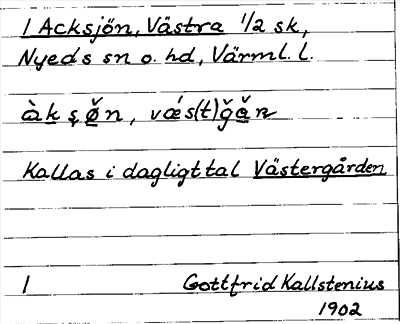 1 Acksjön, Västra 1/2 sk,
Nyeds sn o. hd, Värml. l.
àkşø̌n, vǽs(t)ğǎn
Kallas i dagligt tal Västergården
1 Gottfrid Kallstenius
1902